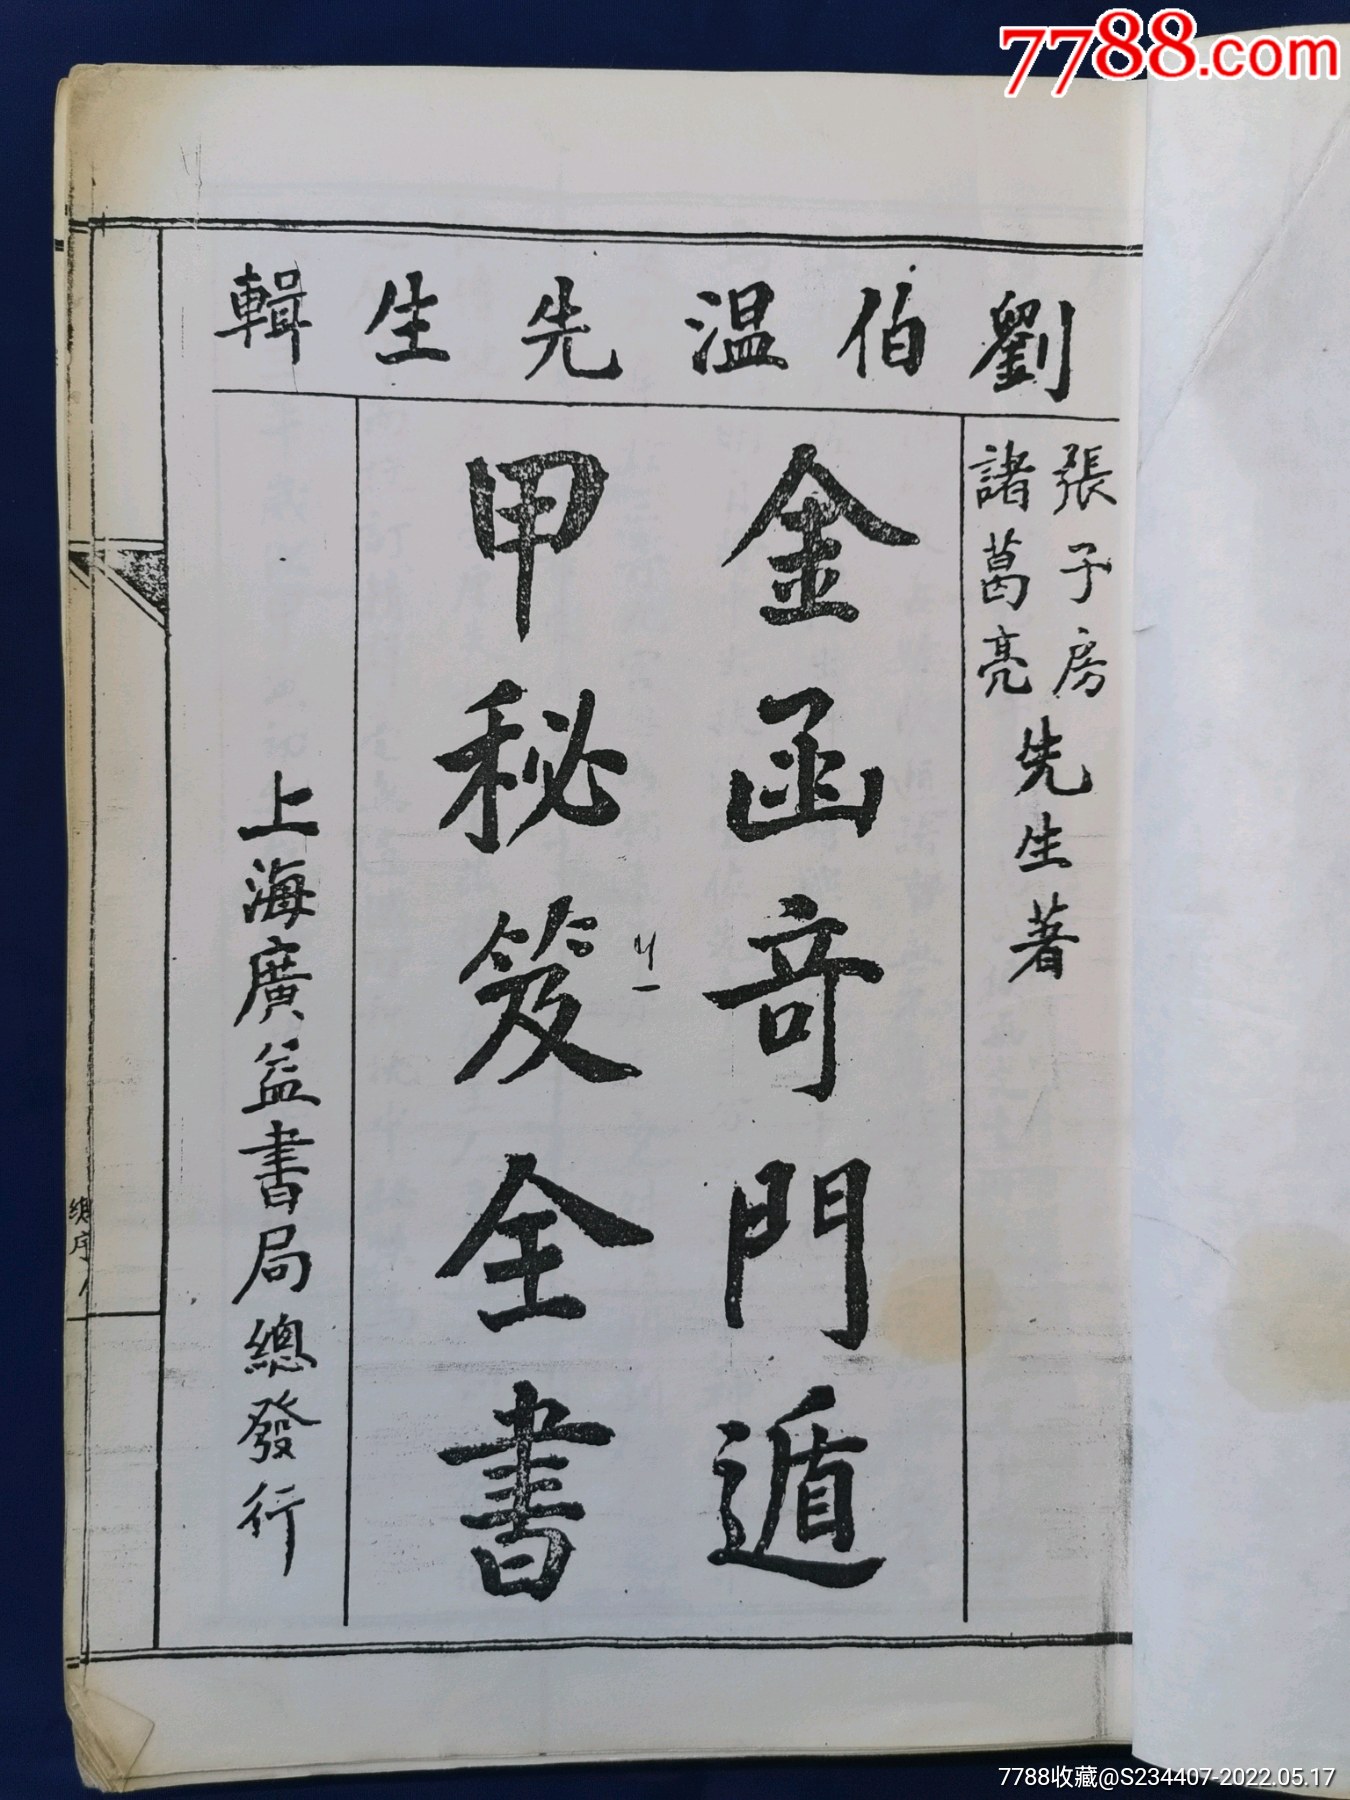 7788.com
劉伯温先生輯
張子房
諸葛亮
先生著
金函竒門遁
甲秘笈全書
上海廣益書局總發行
總序
7788收藏@S234407-2022.05.17